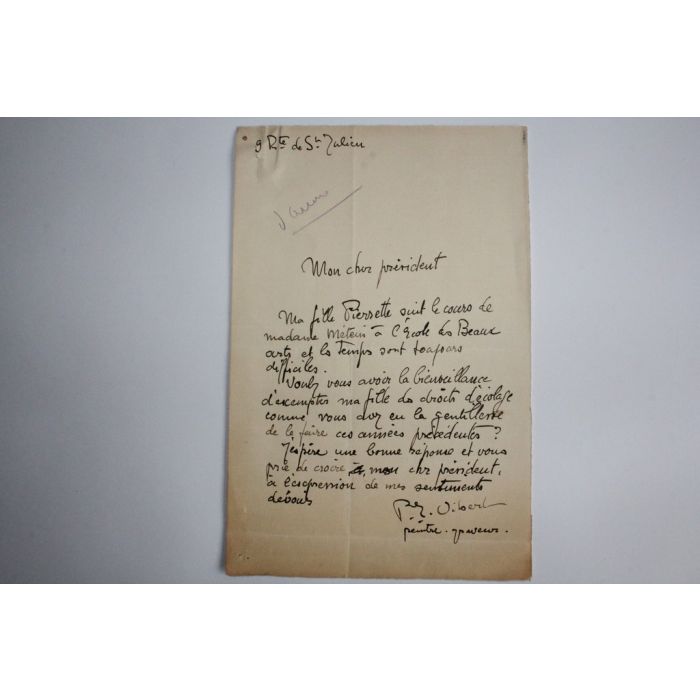 9 Rte de St Julien
Mon cher président
Ma fille Pierrette suit le cours de
madame Métein à l'École des Beaux
arts et les temps sont toujours
difficiles.
Voulez vous avoir la bienveillance
d'exempter ma fille des droits d'écolage
comme vous avez eu la gentillesse
de le faire ces années précédentes ?
J'espère une bonne réponse et vous
prie de croire, mon cher président,
à l'expression de mes sentiments
dévoués
P. E. Vibert
peintre. graveur.